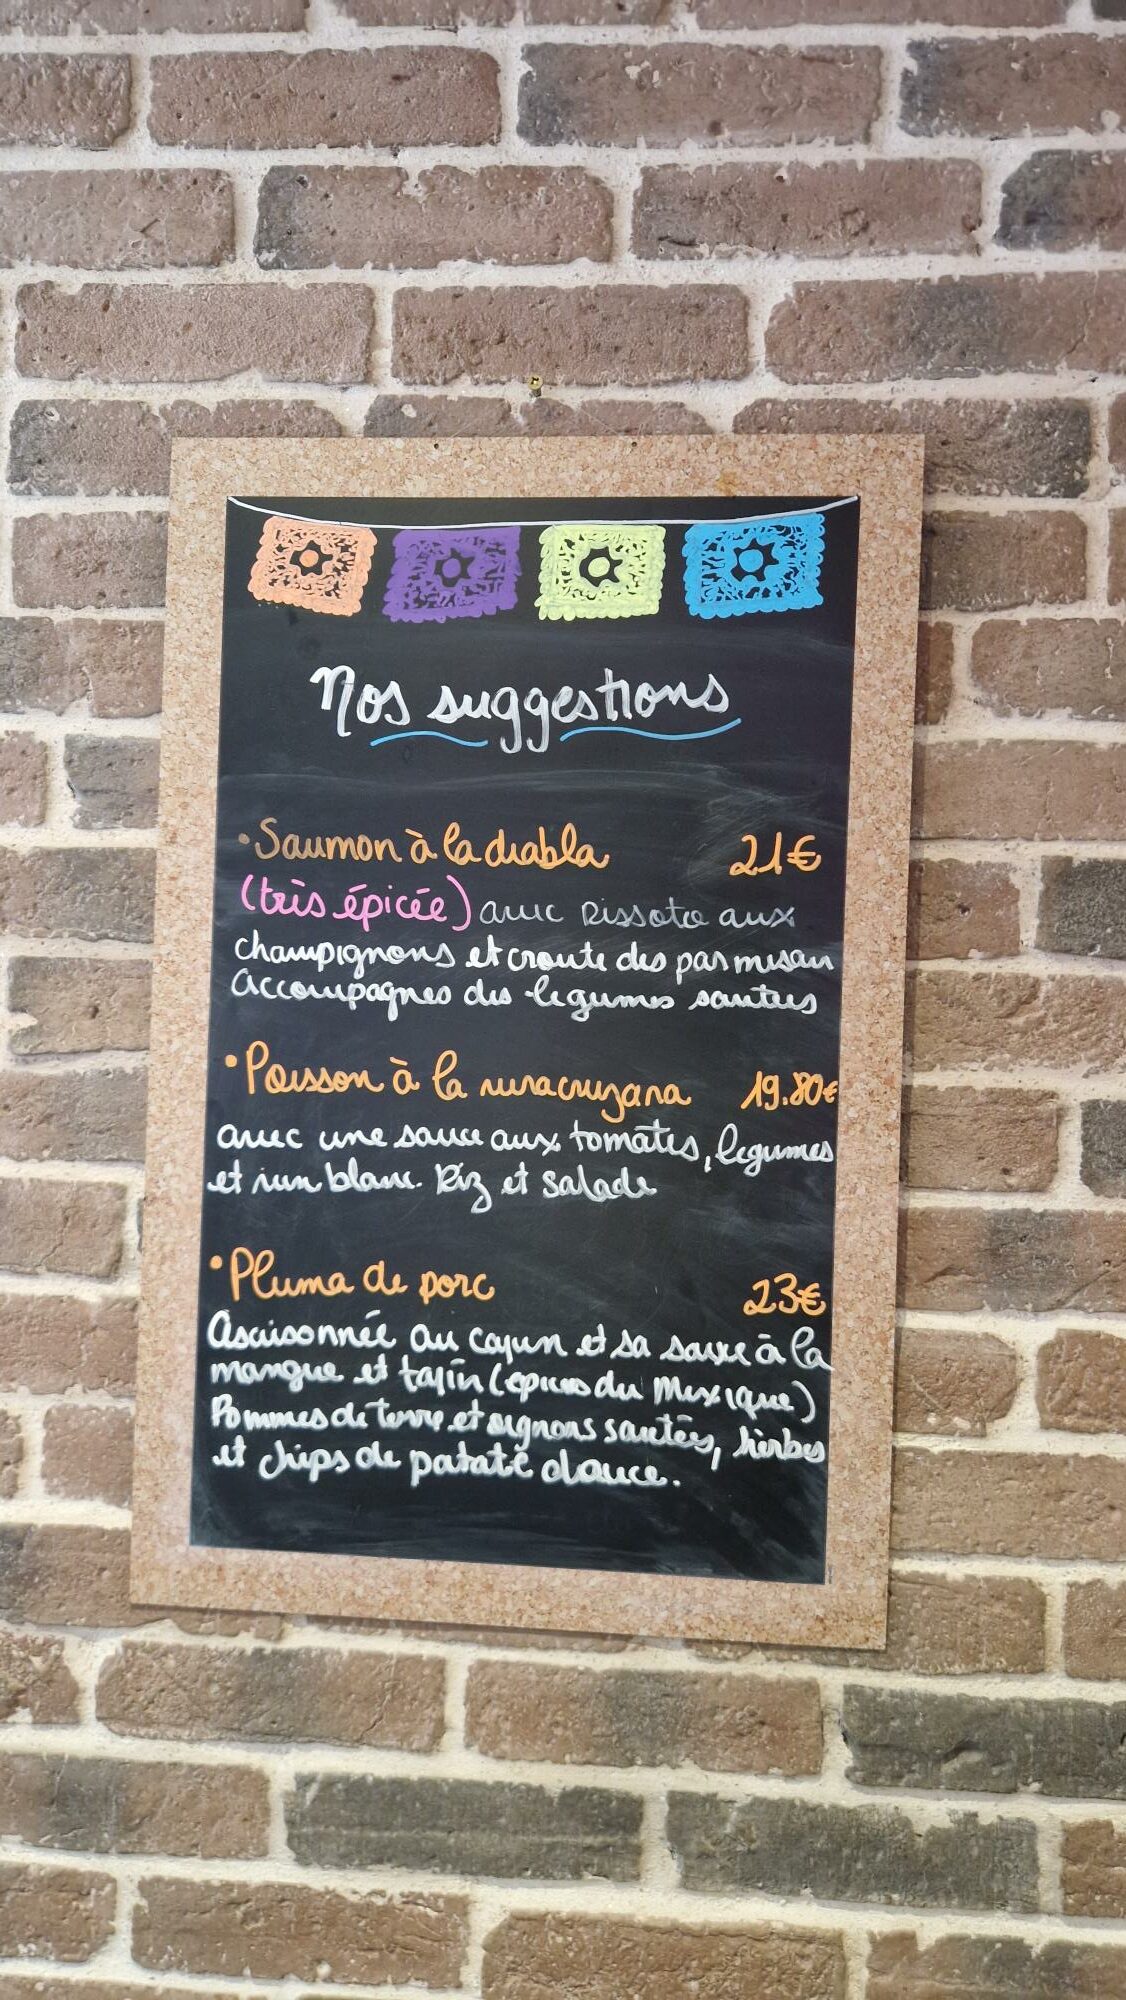 Nos suggestions
• Saumon à la diabla 21€
(très épicée) avec Rissoto aux
champignons et croute des parmesan
Accompagnes des légumes sautées
• Poisson à la veracruzana 19.80€
avec une sauce aux tomates, légumes
et vin blanc. Riz et salade
• Pluma de porc 23€
Asaisonnée au cajun et sa sauce à la
mangue et tajin (épices du Mexique)
Pommes de terre et oignons sautées, herbes
et chips de patate douce.